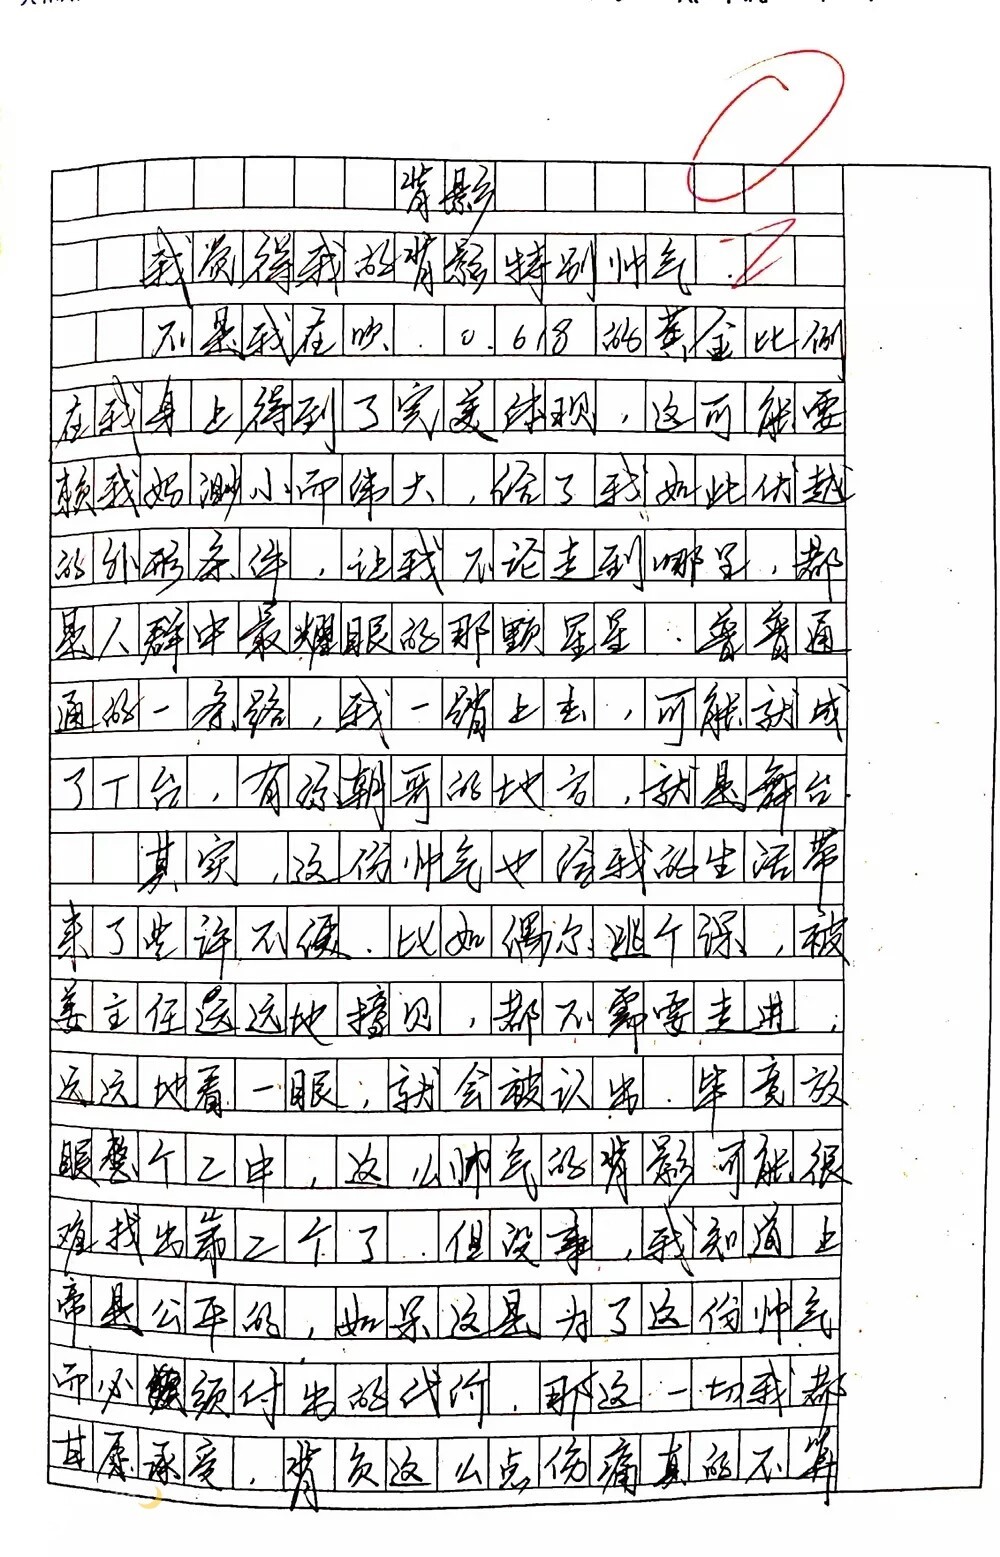 背影
我觉得我的背影特别帅气.
不是我在吹.0.618的黄金比例
在我身上得到了完美体现,这可能要
赖我妈渺小而伟大,给了我如此优越
的外形条件,让我不论走到哪里,都
是人群中最耀眼的那颗星星.普普通
通的一条路,我一踏上去,可能就成
了T台,有朝哥的地方,就是舞台.
其实,这份帅气也给我的生活带
来了些许不便.比如偶尔逃个课,被
姜主任远远地撞见,都不需要走进,
远远地看一眼,就会被认出.毕竟放
眼整个二中,这么帅气的背影可能很
难找出第二个了.但没事,我知道上
帝是公平的,如果这是为了这份帅气
而必须付出的代价.那这一切我都
甘愿承受,背负这么点伤痛真的不算